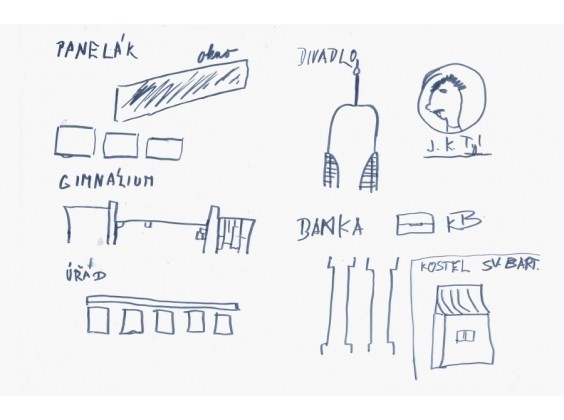 PANELÁK
okno
GIMNÁZIUM
ÚŘAD
DIVADLO
J. K. Tyl
BANKA
KB
KOSTEL SV. BART.